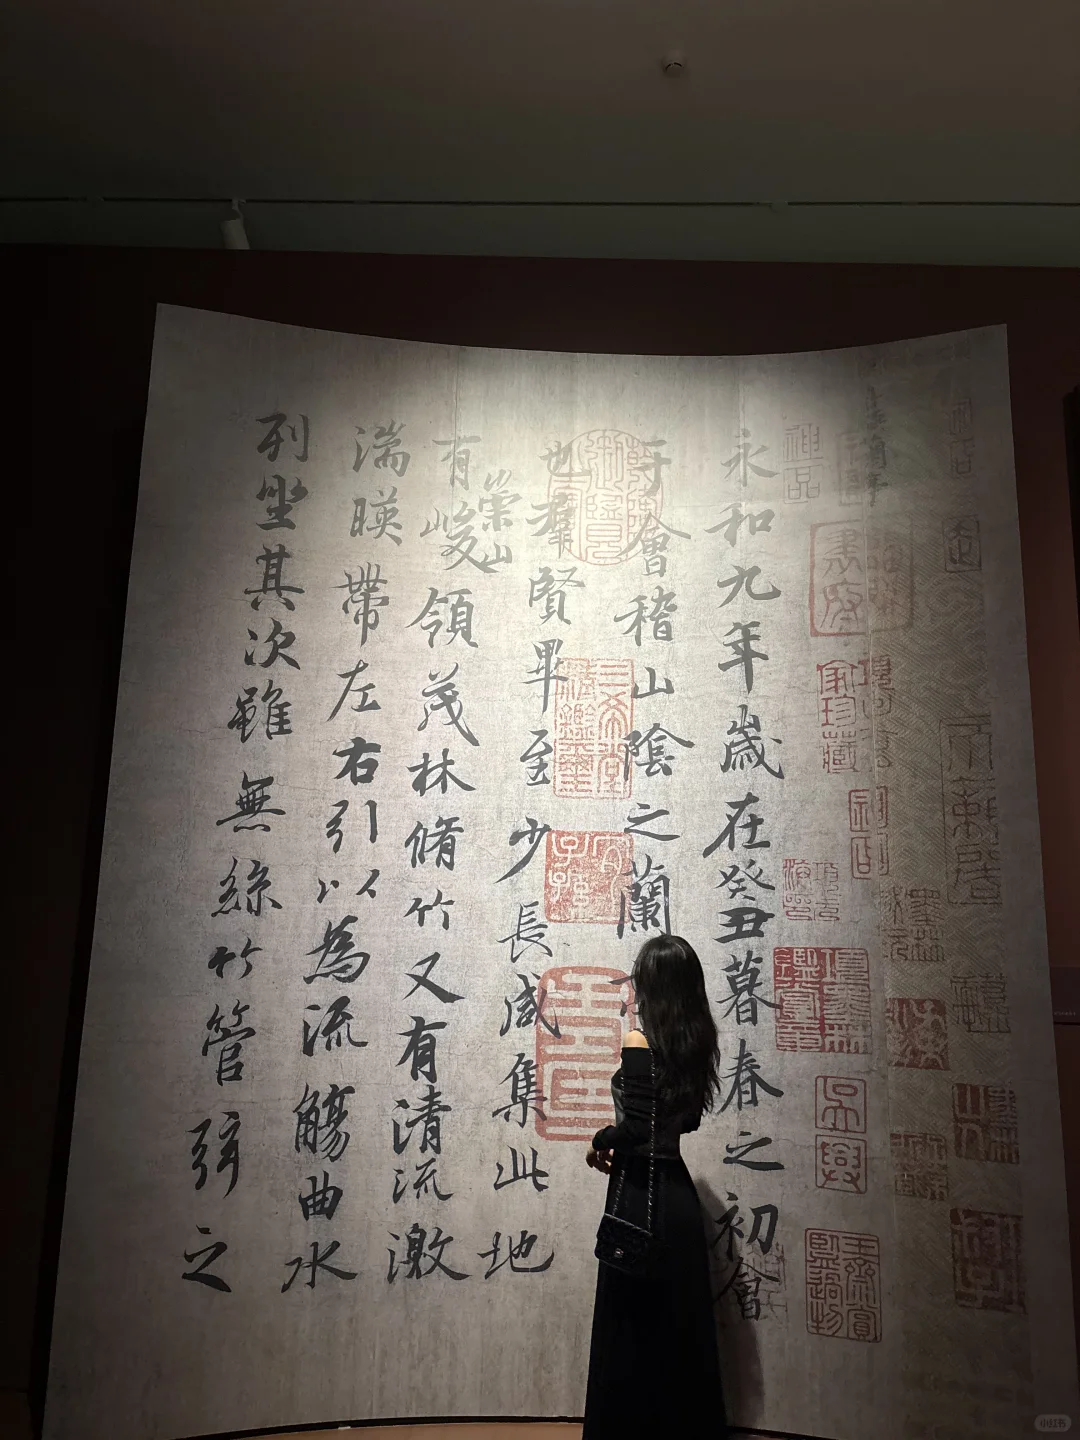 神品
吳興
永和九年歲在癸丑暮春之初會
于會稽山陰之蘭
三希堂精鑑璽
宜子孫
也羣賢畢至少長咸集此地
有崇山峻領茂林脩竹又有清流激
湍暎帶左右引以為流觴曲水
列坐其次雖無絲竹管弦之
小红书